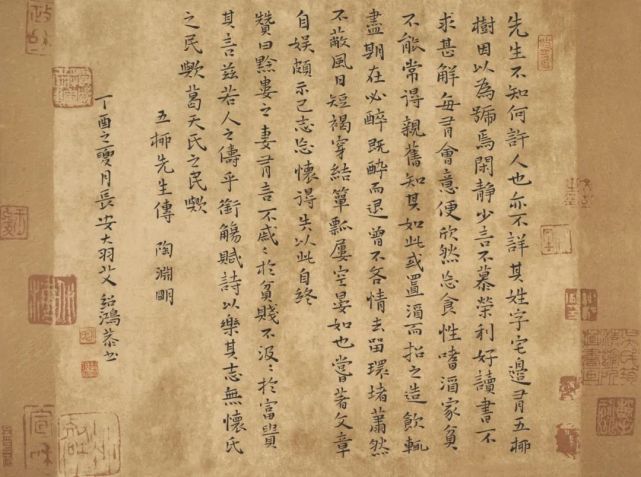 先生不知何許人也亦不詳其姓字宅邊有五柳
樹因以為號焉閑靜少言不慕榮利好讀書不
求甚解每有會意便欣然忘食性嗜酒家貧
不能常得親舊知其如此或置酒而招之造飲輒
盡期在必醉既醉而退曾不吝情去留環堵蕭然
不蔽風日短褐穿結簞瓢屢空晏如也嘗著文章
自娛頗示己志忘懷得失以此自終
贊曰黔婁之妻有言不戚〻於貧賤不汲〻於富貴
其言茲若人之儔乎銜觴賦詩以樂其志無懷氏
之民歟葛天氏之民歟
五柳先生傳 陶淵明
丁酉之夏月長安大羽 鴻恭書